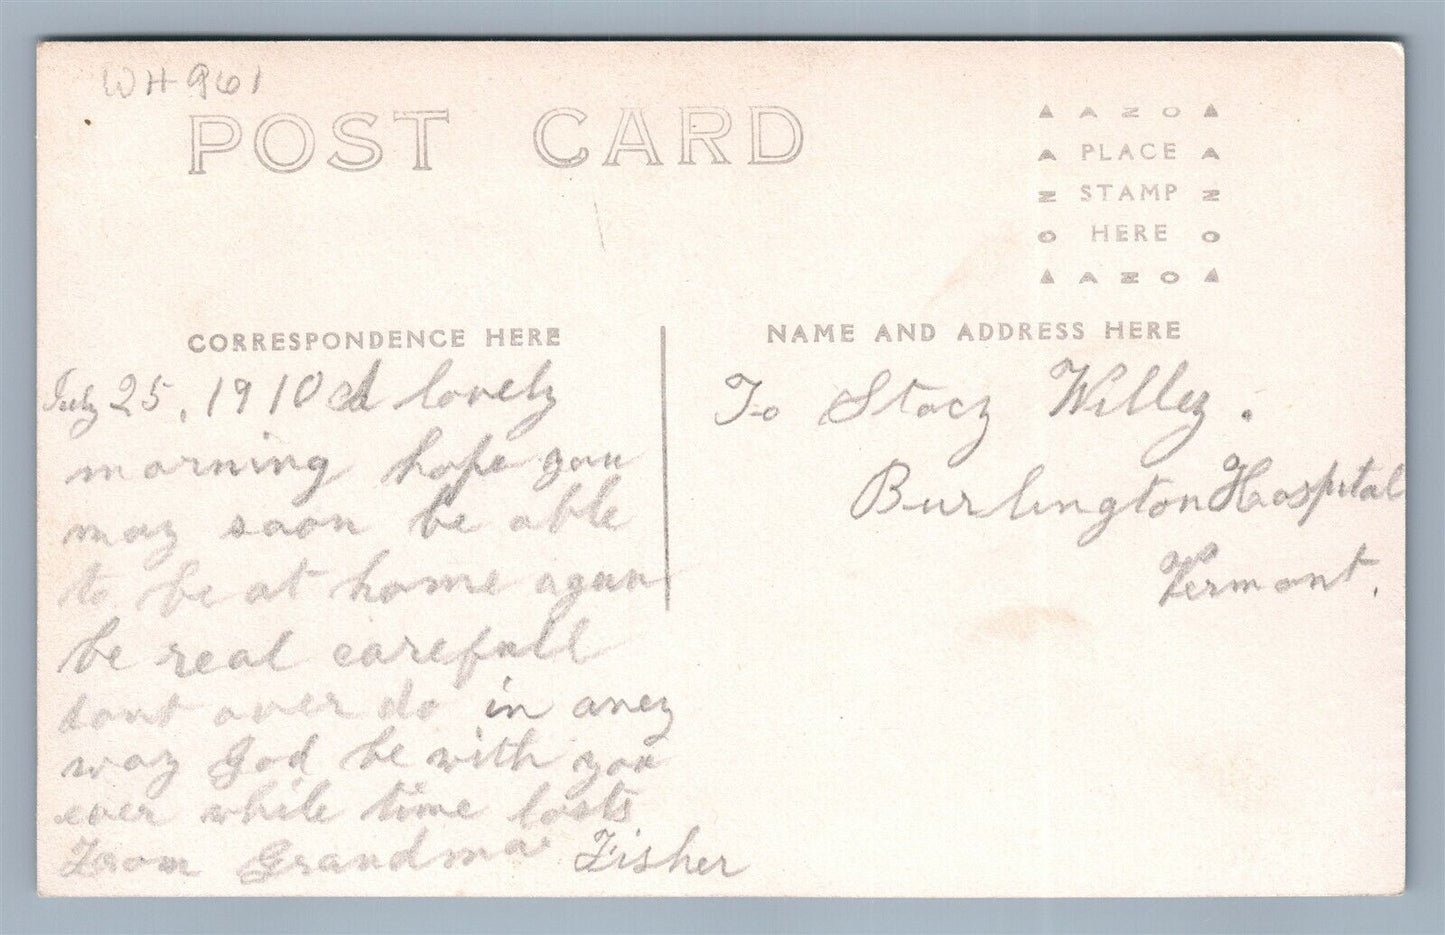 WH961
POST CARD
▲ A Z O ▲
A PLACE A
N STAMP N
O HERE O
▲ A Z O ▲
CORRESPONDENCE HERE
NAME AND ADDRESS HERE
July 25, 1910 a lovely
morning hope you
may soon be able
to be at home again
be real carefull
dont over do in aney
way God be with you
ever while time lasts
From Grandma Fisher
To Stacy Willey.
Burlington Haospital
Vermont.